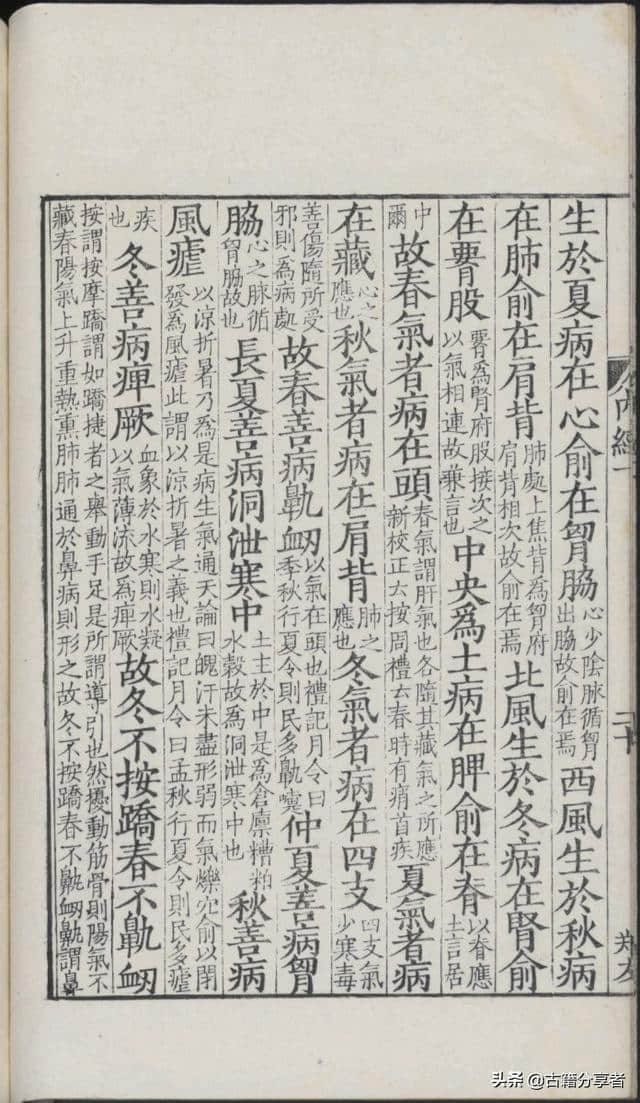 生於夏病在心俞在胷脇心少陰脉循胷出脇故俞在焉西風生於秋病
在肺俞在肩背肺處上焦背爲胷府肩背相次故俞在焉北風生於冬病在腎俞
在䐴股䐴爲腎府股接次之以氣相連故兼言也中央爲土病在脾俞在脊以脊應土言居
中爾故春氣者病在頭春氣謂肝氣也各隨其藏氣之所應新校正云按周禮云春時有痟首疾夏氣者病
在藏心之應也秋氣者病在肩背肺之應也冬氣者病在四支四支氣少寒毒
善傷隨所受邪則爲病處故春善病鼽衂以氣在頭也禮記月令曰季秋行夏令則民多鼽嚏仲夏善病胷
脇心之脉循胷脇故也長夏善病洞泄寒中土主於中是爲倉廪糟粕水穀故爲洞泄寒中也秋善病
風瘧以涼折暑乃爲是病生氣通天論曰魄汗未盡形弱而氣爍穴俞以閉發爲風瘧此謂以涼折暑之義也禮記月令曰孟秋行夏令則民多瘧
疾也冬善病痺厥血象於水寒則水凝以氣薄流故爲痺厥故冬不按蹻春不鼽衂
按謂按摩蹻謂如蹻捷者之舉動手足是所謂導引也然擾動筋骨則陽氣不藏春陽氣上升重熱熏肺肺通於鼻病則形之故冬不按蹻春不鼽衂鼽謂鼻
内經一
二十
头条 @古籍分享者